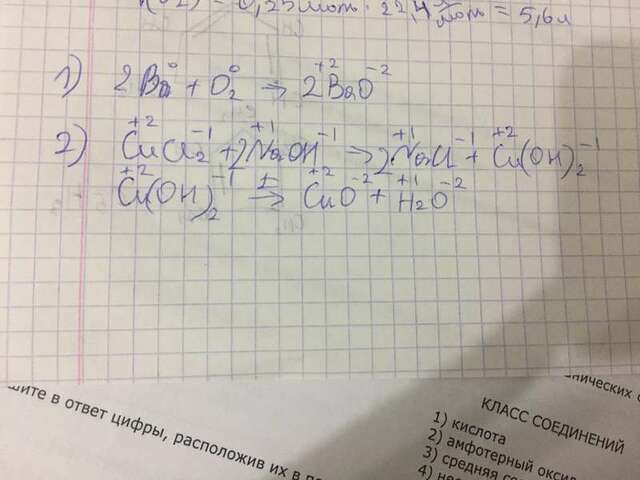 = 0,25моль · 22,4 л/моль = 5,6л
1) 2Ba⁰ + O₂⁰ → 2Ba⁺²O⁻²
2) Cu⁺²Cl₂⁻¹ + 2Na⁺¹OH⁻¹ → 2Na⁺¹Cl⁻¹ + Cu⁺²(OH)₂⁻¹
Cu⁺²(OH)₂⁻¹ →ᵗ Cu⁺²O⁻² + H₂⁺¹O⁻²
ите в ответ цифры, расположив их в
КЛАСС СОЕДИНЕНИЙ
1) кислота
2) амфотерный
3) средняя
4)